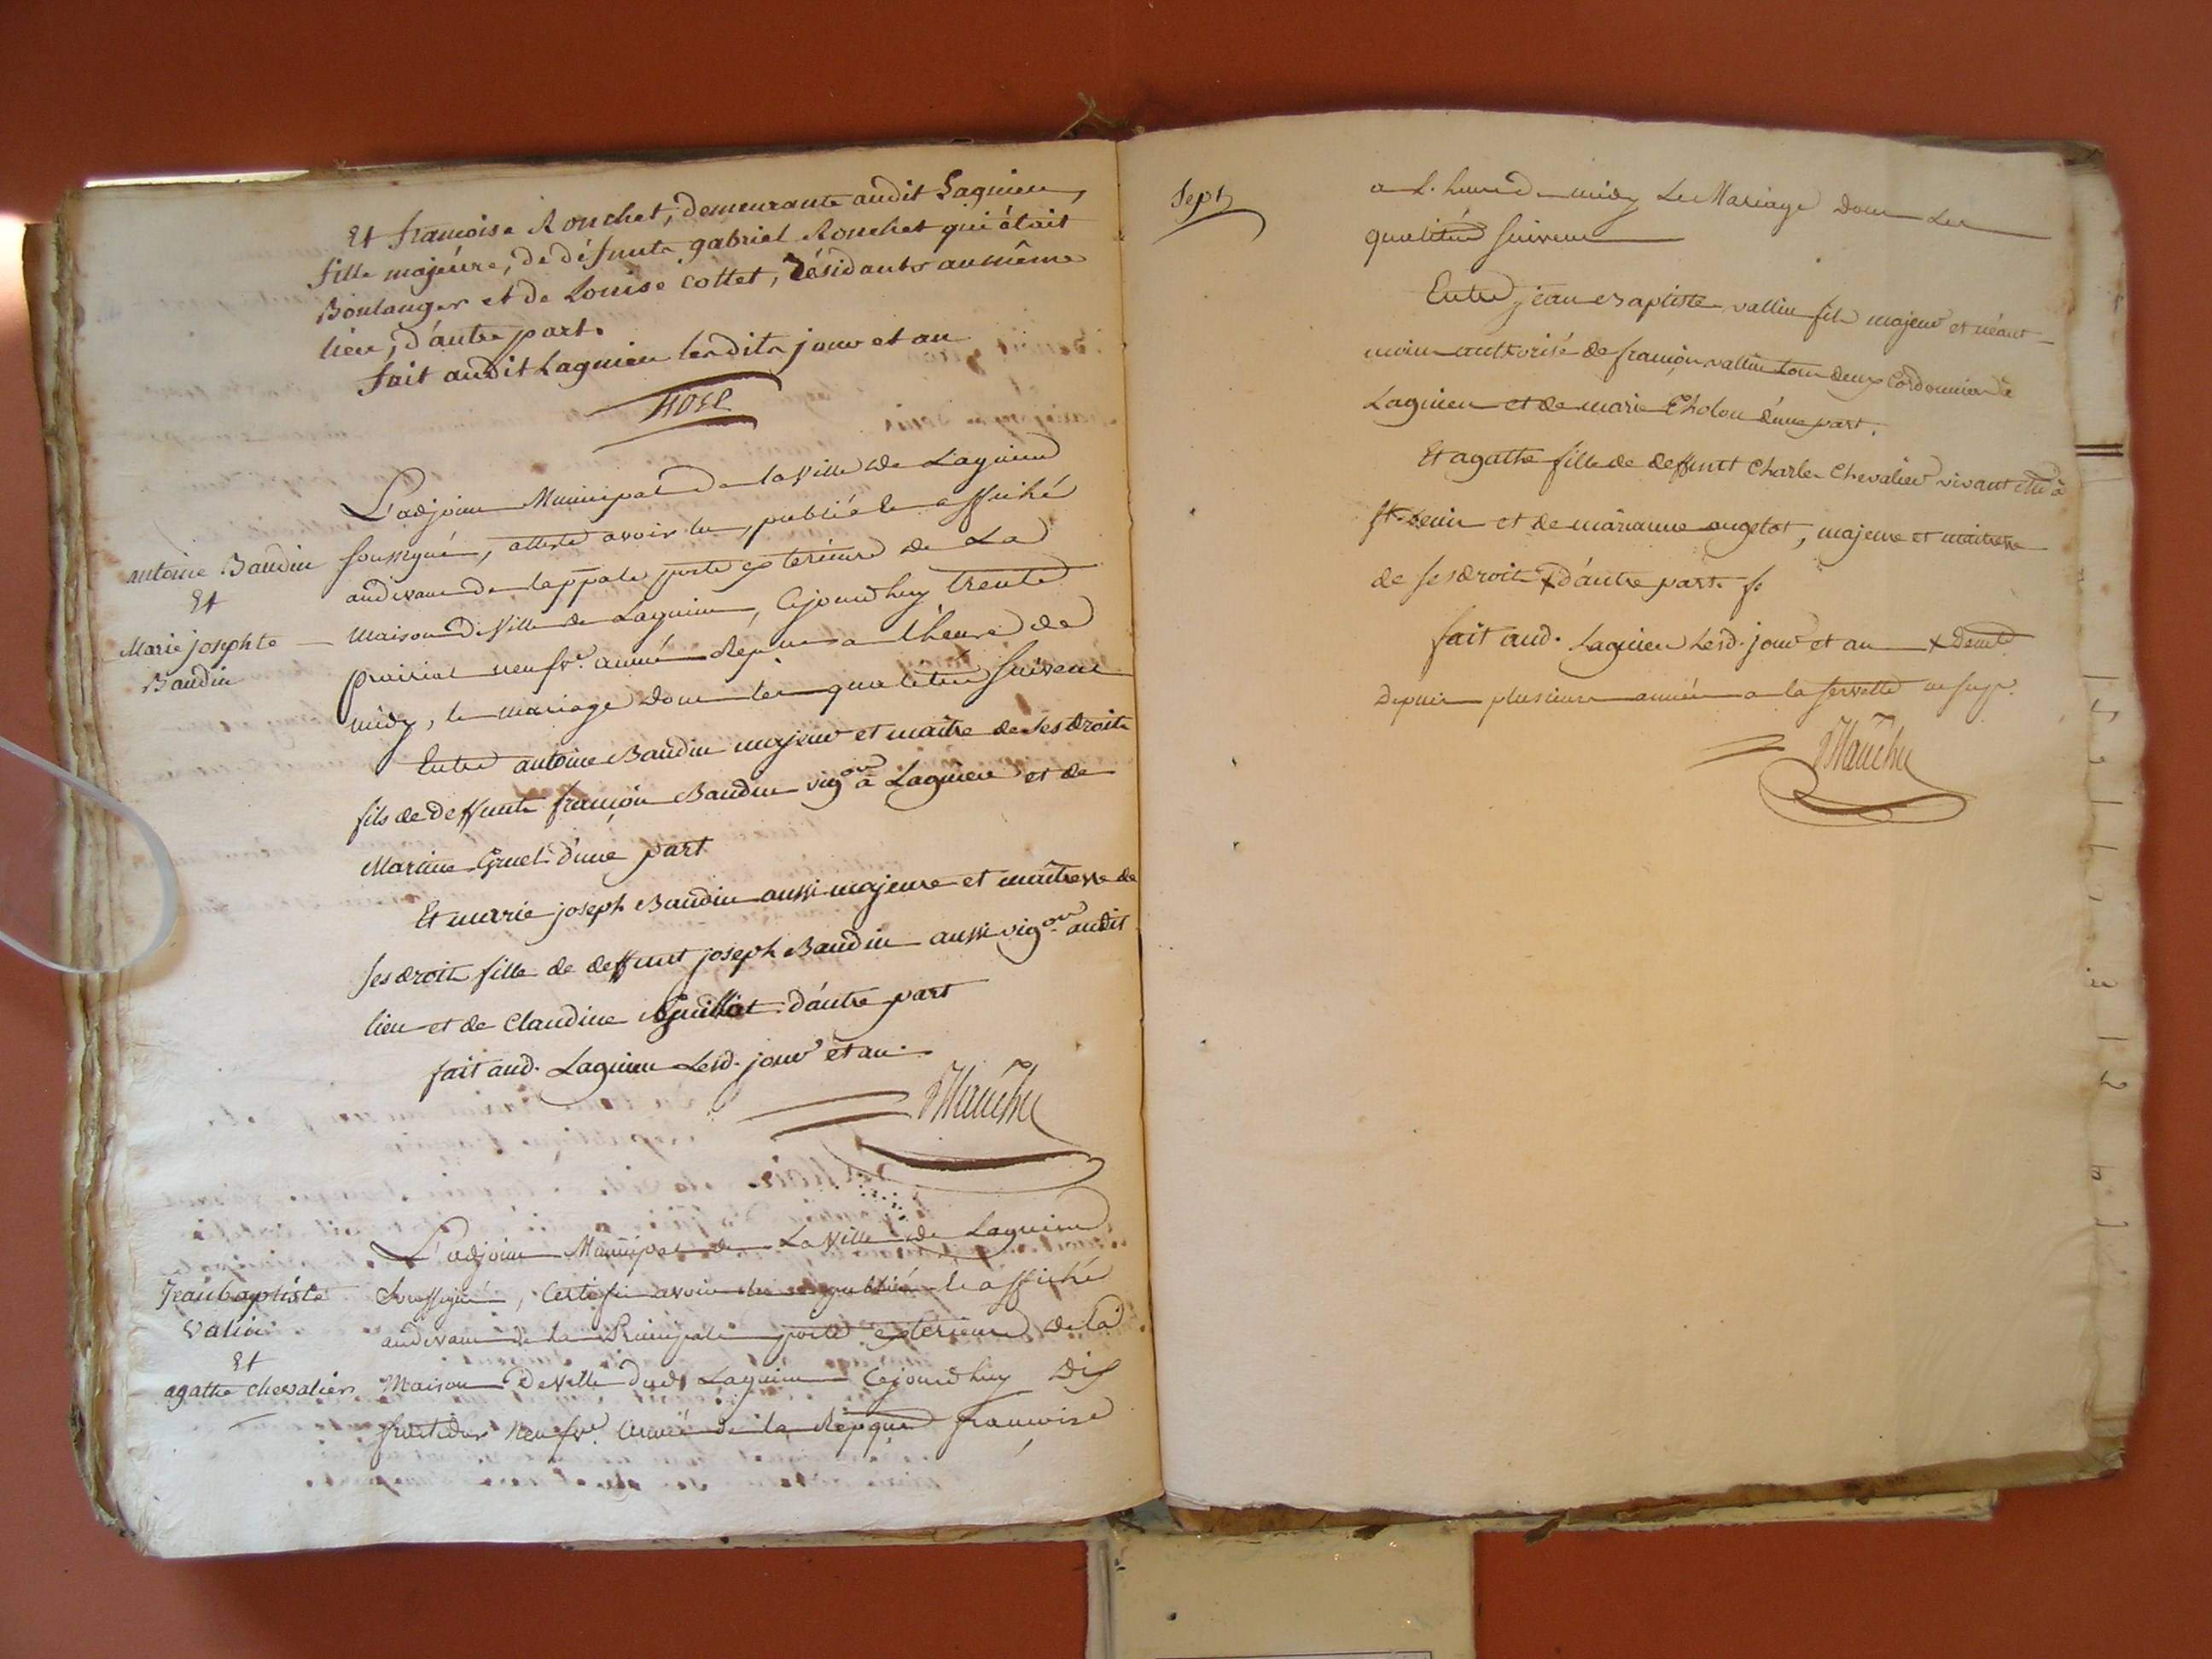 Et francoise Rouchet, demeurante audit Lagnieu,
fille majeure, de défunts gabriel Rouchet qui était
Boulanger et de Louise Cottet, résidants au même
lieu, d'autre part.
fait audit Lagnieu lesdits jour et an
antoine Baudin
Et
Marie josephte
Baudin
L'adjoint Municipal de la Ville de Lagnieu
soussigné, atteste avoir lu, publié et affiché
audevant de la ppale porte exterieure de La
Maison de Ville de Lagnieu, Cejourdhuy trente
prairial neufve. année Repne a l'heure de
midy, le mariage dont les qualités suivent
Entre antoine Baudin majeur et maitre de ses droits
fils de deffunts françois Baudin vigon à Lagnieu et de
Marianne Gruel d'une part
Et marie joseph Baudin aussi majeure et maitresse de
ses droits fille de deffunt joseph Baudin aussi vigon audit
lieu et de Claudine Guillot d'autre part
fait aud. Lagnieu Lesd. jour et an.
Jean baptiste
Valin
Et
agathe chevalier
L'adjoint Municipal de La Ville de Lagnieu
soussigné, Certifie avoir lu publié et affiché
audevant de la Principale porte exterieure de la
Maison de Ville dud. Lagnieu Cejourdhuy Dix
fructidor neufve. année de la Repque francoise
Sept
a L'heure de midy Le Mariage dont Les
qualités suivent
Entre jean Baptiste vallin fils majeur et néant-
moins authorisé de françois vallin tous deux Cordonniers à
Lagnieu et de marie Cholou d'une part.
Et agathe fille de deffunt Charles Chevalier vivant
st. Denis et de marianne angelot, majeure et maitresse
de ses droits x d'autre part.
fait aud. Lagnieu Lesd. jour et an x Demte
Depuis plusieurs années a la servette